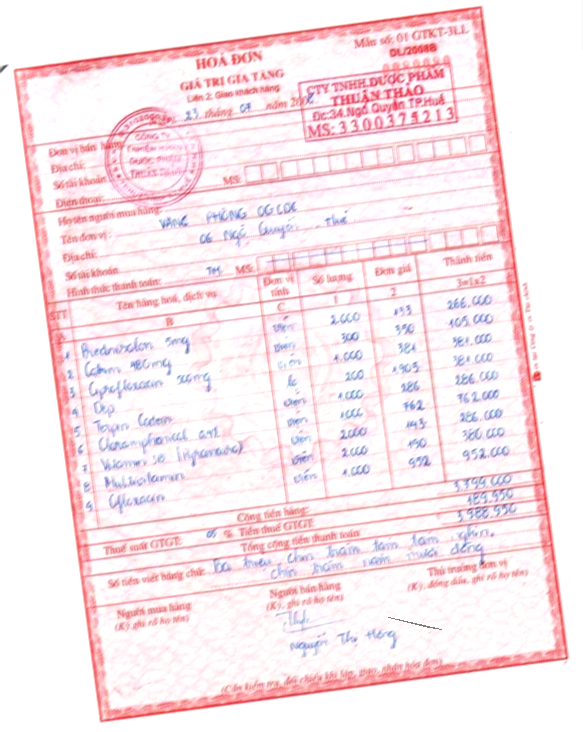 Mẫu số: 01 GTKT-3LL
DL/2008B
HOÁ ĐƠN
GIÁ TRỊ GIA TĂNG
Liên 2: Giao khách hàng
23 tháng 07 năm 200
CTY TNHH.DƯỢC PHẨM
THUẬN THẢO
Đc:34.Ngô Quyền TP.Huế
MS: 3300375213
Đơn vị bán hàng:
Địa chỉ:
Số tài khoản:
Điện thoại: MS:
Họ tên người mua hàng:
Tên đơn vị: VĂNG PHÒNG OGCDC
Địa chỉ: 06 Ngô Quyền Huế
Số tài khoản
Hình thức thanh toán: TM MS:
STT Tên hàng hoá, dịch vụ Đơn vị tính Số lượng Đơn giá Thành tiền
A B C 1 2 3=1x2
1 Prednisolon 5mg viên 2.000 133 266.000
2 viên 300 350 105.000
3 Ciprofloxacin 500mg viên 1.000 381 381.000
4 Dep lọ 200 1.905 381.000
5 Terpin Codein viên 1.000 286 286.000
6 viên 1.000 762 762.000
7 Vitamin viên 2.000 143 286.000
8 Multivitamin viên 2.000 190 380.000
9 Ofloxacin viên 1.000 952 952.000
Cộng tiền hàng: 3.799.000
Thuế suất GTGT: 05 % Tiền thuế GTGT: 189.950
Tổng cộng tiền thanh toán: 3.988.950
Số tiền viết bằng chữ: ba triệu, chín trăm tám tám nghìn,
chín trăm năm mươi đồng
Người mua hàng Người bán hàng Thủ trưởng đơn vị
(Ký, ghi rõ họ tên) (Ký, ghi rõ họ tên) (Ký, đóng dấu, ghi rõ họ tên)
Nguyễn Thị Hồng
(Cần kiểm tra, đối chiếu khi lập, giao, nhận hóa đơn)